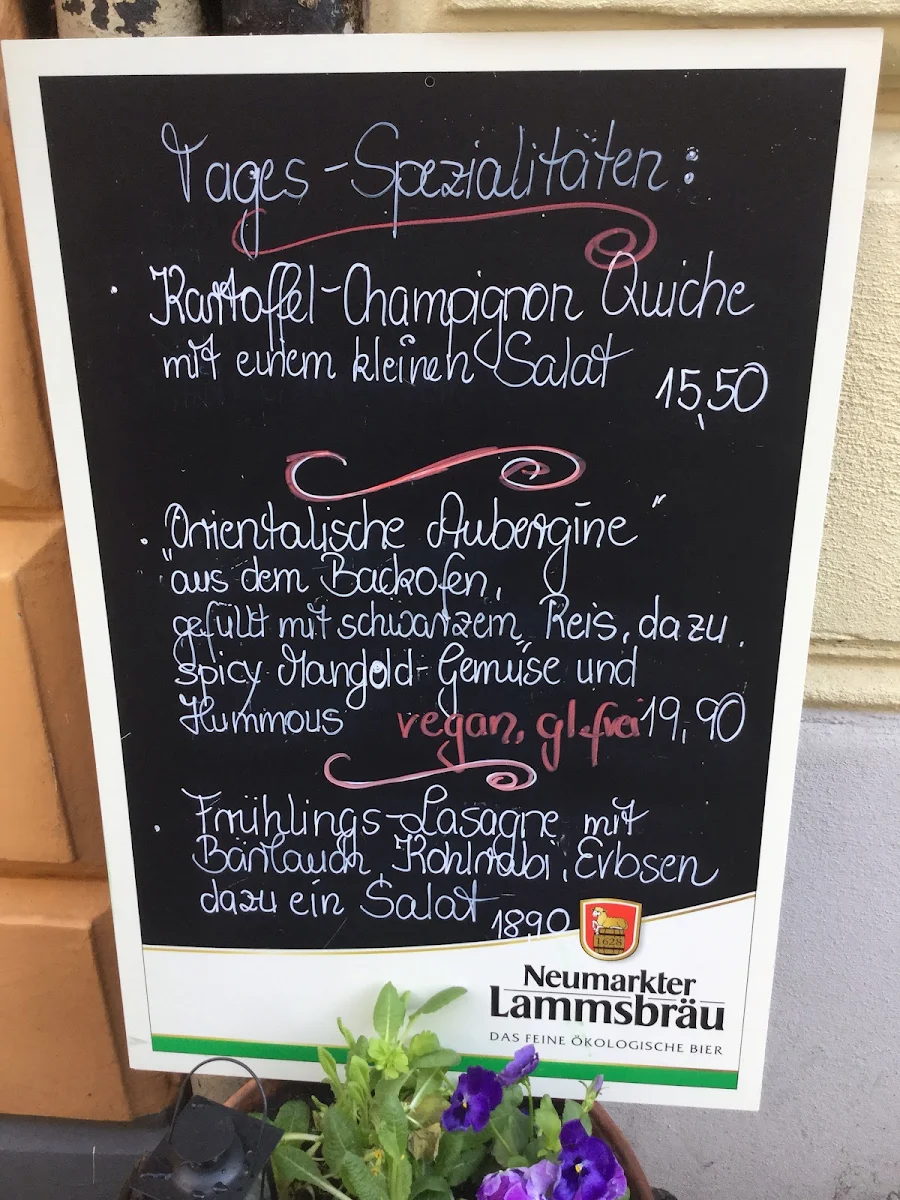 Tages-Spezialitäten:
Kartoffel-Champignon Quiche
mit einem kleinen Salat
15,50
„Orientalische Aubergine"
aus dem Backofen,
gefüllt mit schwarzem Reis, dazu
spicy Mangold-Gemüse und
Hummous vegan, gl.frei 19,90
Frühlings-Lasagne mit
Bärlauch, Kohlrabi, Erbsen
dazu ein Salat 18,90
1628
Neumarkter
Lammsbräu
DAS FEINE ÖKOLOGISCHE BIER